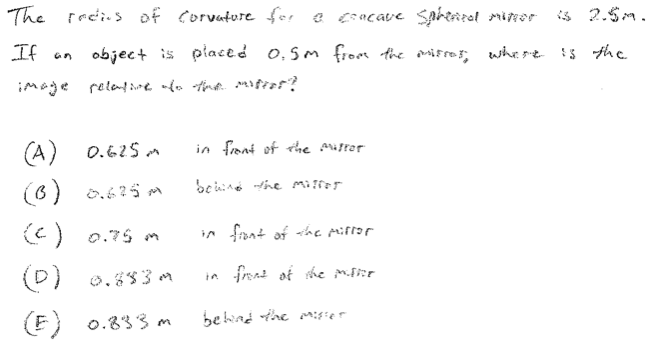 The radius of corvature for a concave Spherical mirror is 2.5m.
If an object is placed 0.5m from the mirror, where is the
image relative to the mirror?
(A) 0.625 m in front of the mirror
(B) 0.625 m behind the mirror
(C) 0.75 m in front of the mirror
(D) 0.833 m in front of the mirror
(E) 0.833 m behind the mirror